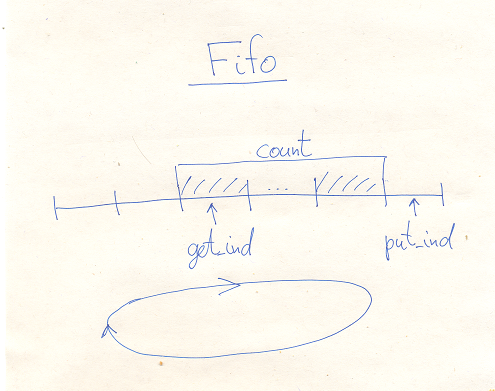 Fifo
count
...
get_ind
put_ind